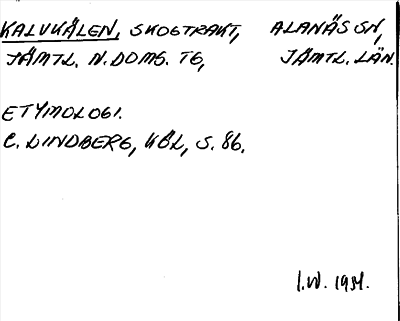 KALVKÄLEN, SKOGTRAKT, ALANÄS SN,
JÄMTL. N. DOMS. TG, JÄMTL. LÄN.
ETYMOLOGI.
C. LINDBERG, KÖL, S. 86.
I.W. 1951.